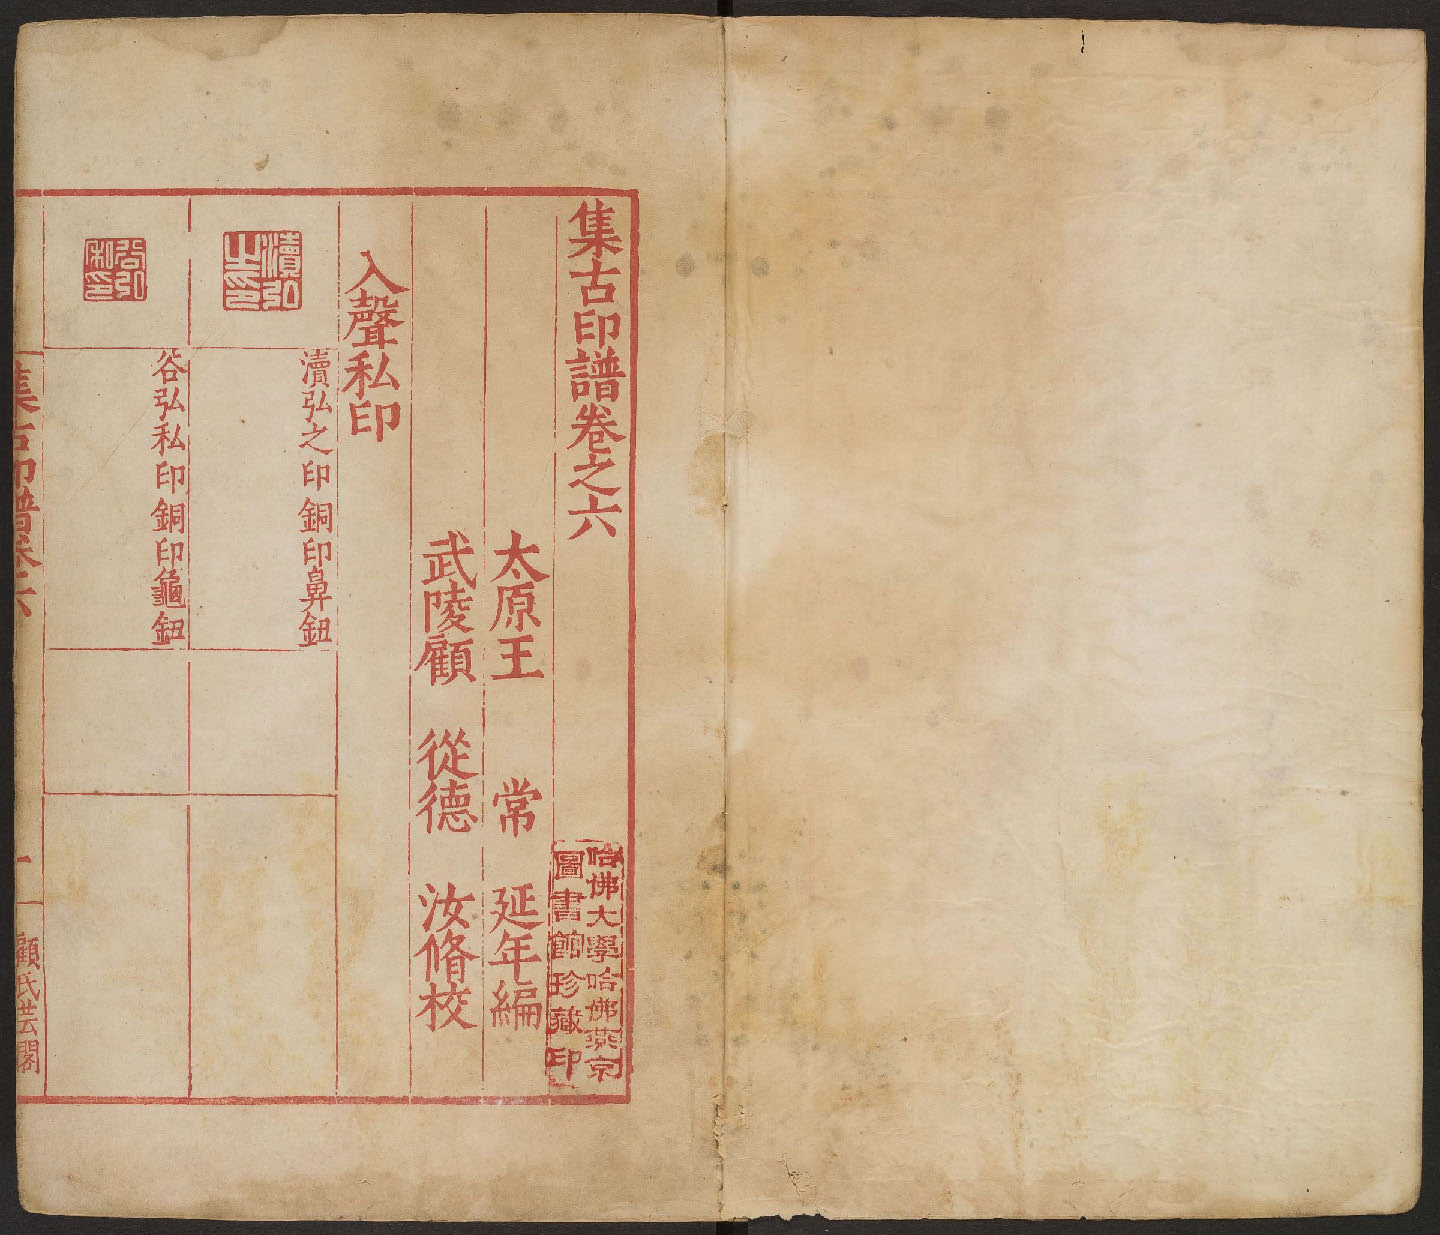 集古印譜卷之六
哈佛大學哈佛燕京
圖書館珍藏印
太原王 常 延年編
武陵顧 從德 汝脩校
入聲私印
瀆弘之印
瀆弘之印銅印鼻鈕
谷弘私印
谷弘私印銅印龜鈕
集古印譜卷六
一
顧氏芸閣